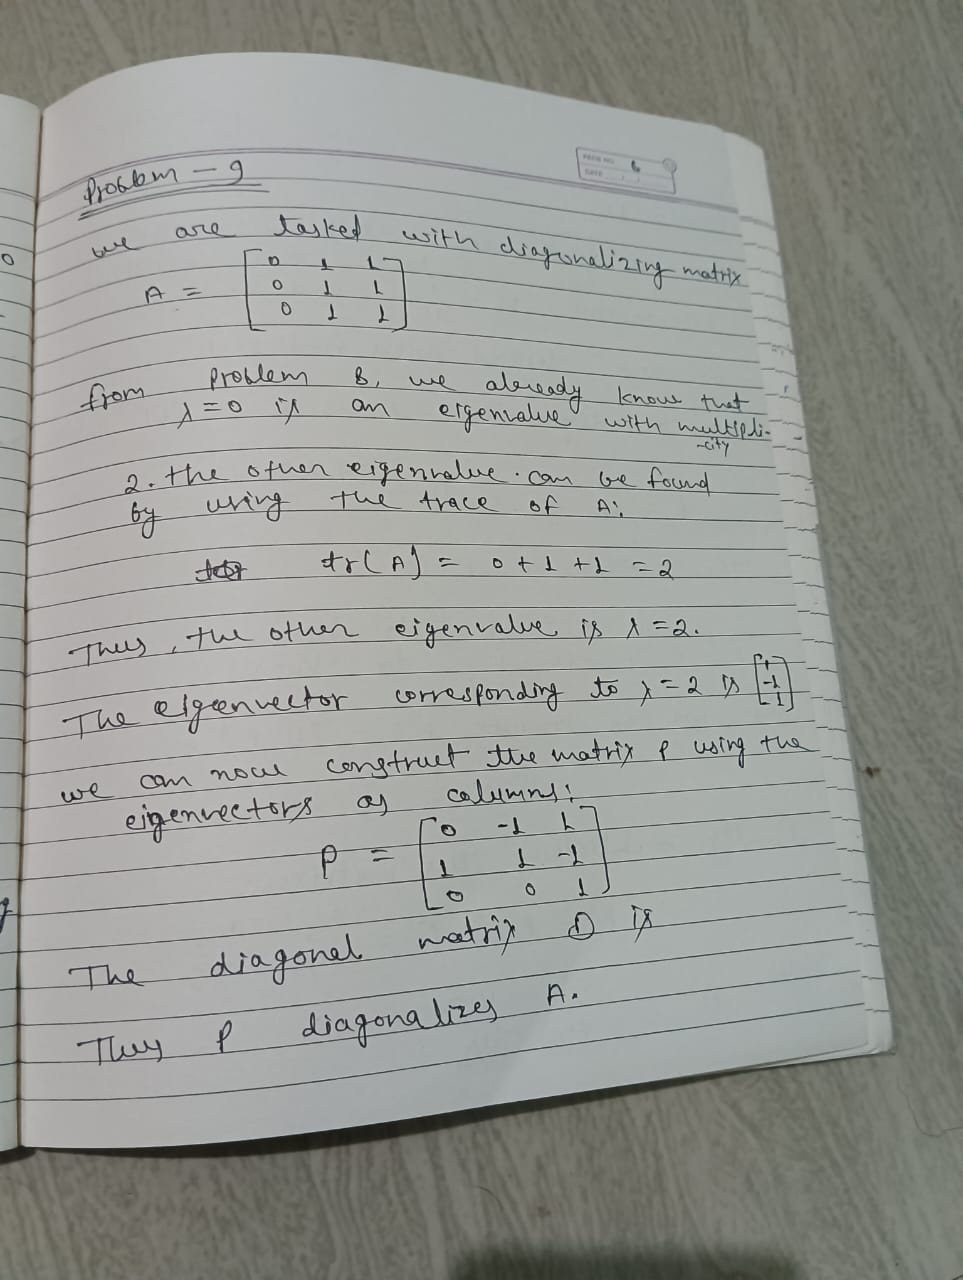 PAGE NO. 6
DATE
Problem - 9
we are tasked with diagonalizing matrix
A = [0 1 1
0 1 1
0 1 1]
from Problem 8, we already know that
λ=0 is an eigenvalue with multipli-
-city
2. the other eigenvalue. can be found
by using the trace of A:
tr(A) = 0+1+1 = 2
Thus, the other eigenvalue is λ=2.
The eigeenvector corresponding to λ=2 is [1
-1
1]
we can now construct the matrix P using the
eigenvectors as columns:
P = [0 -1 1
1 1 -1
0 0 1]
The diagonal matrix D is
Thus P diagonalizes A.